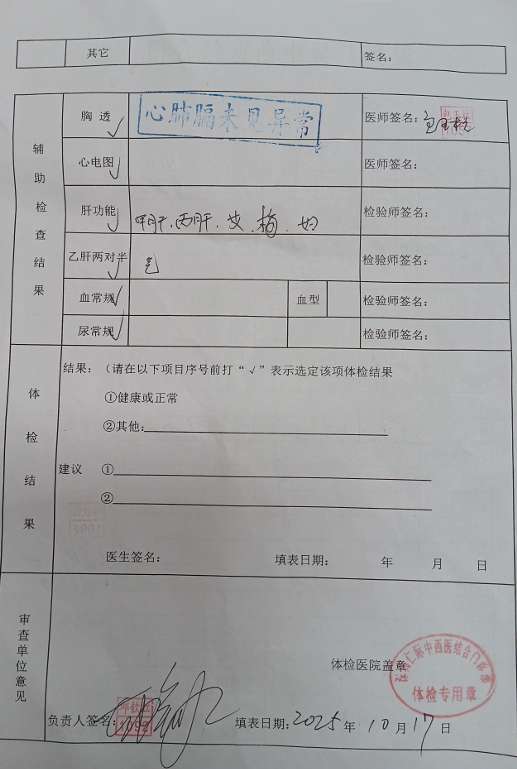 其它 签名：
辅助检查结果
胸 透√ 心肺膈未见异常 医师签名：
心电图√ 医师签名：
肝功能√ 甲肝.丙肝.艾.梅.妇 检验师签名：
乙肝两对半 检验师签名：
血常规√ 血型 检验师签名：
尿常规√ 检验师签名：
体检结果
结果：（请在以下项目序号前打“√”表示选定该项体检结果
①健康或正常
②其他：
建议 ①
②
医生签名： 填表日期： 年 月 日
审查单位意见
体检医院盖章
中西医结合门诊部
体检专用章
负责人签名： 填表日期：2025年10月17日